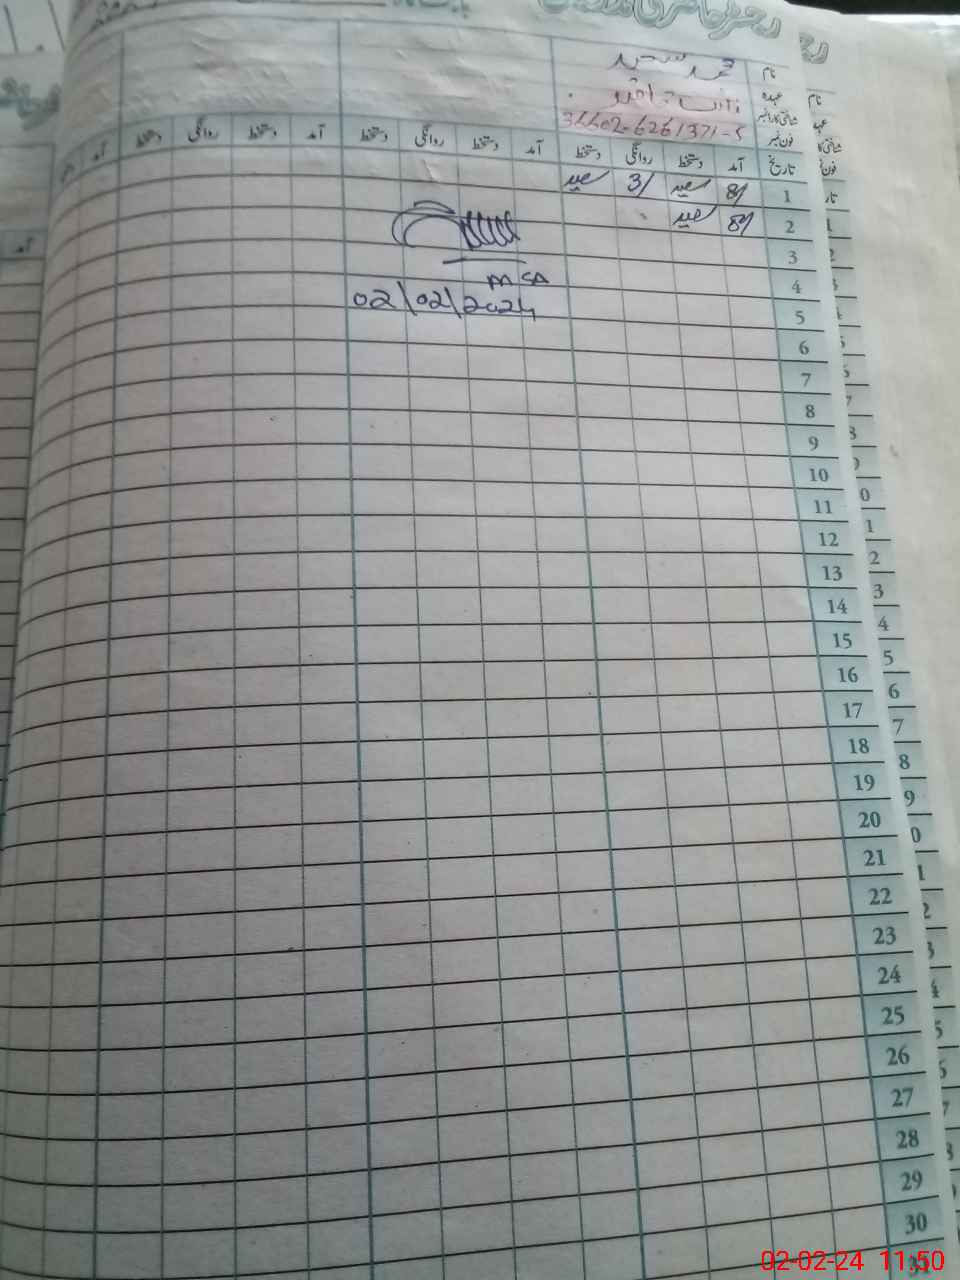 رجسٹر حاضری
نام محمد سعید
عہدہ
شناختی کارڈ نمبر 36602-6261371-5
فون نمبر
تاریخ آمد دستخط روانگی دستخط آمد دستخط روانگی دستخط آمد دستخط روانگی دستخط آمد
1 8/ سعید 3/ سعید
2 8/ سعید
3
4 MSA
5 02/02/2024
6
7
8
9
10
11
12
13
14
15
16
17
18
19
20
21
22
23
24
25
26
27
28
29
30
31
02-02-24 11:50